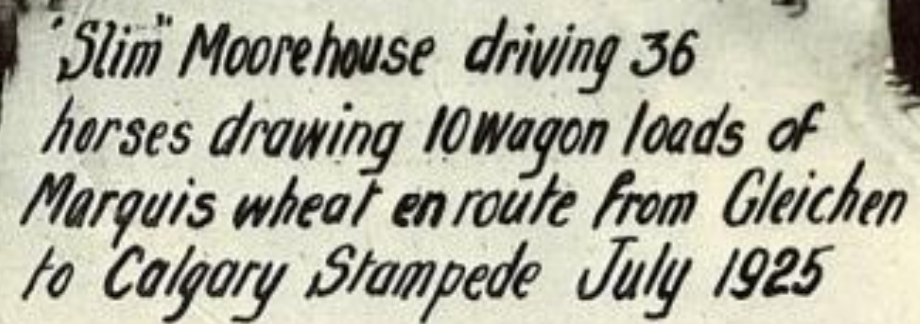 "Slim" Moorehouse driving 36
horses drawing 10 Wagon loads of
Marquis wheat en route from Gleichen
to Calgary Stampede July 1925